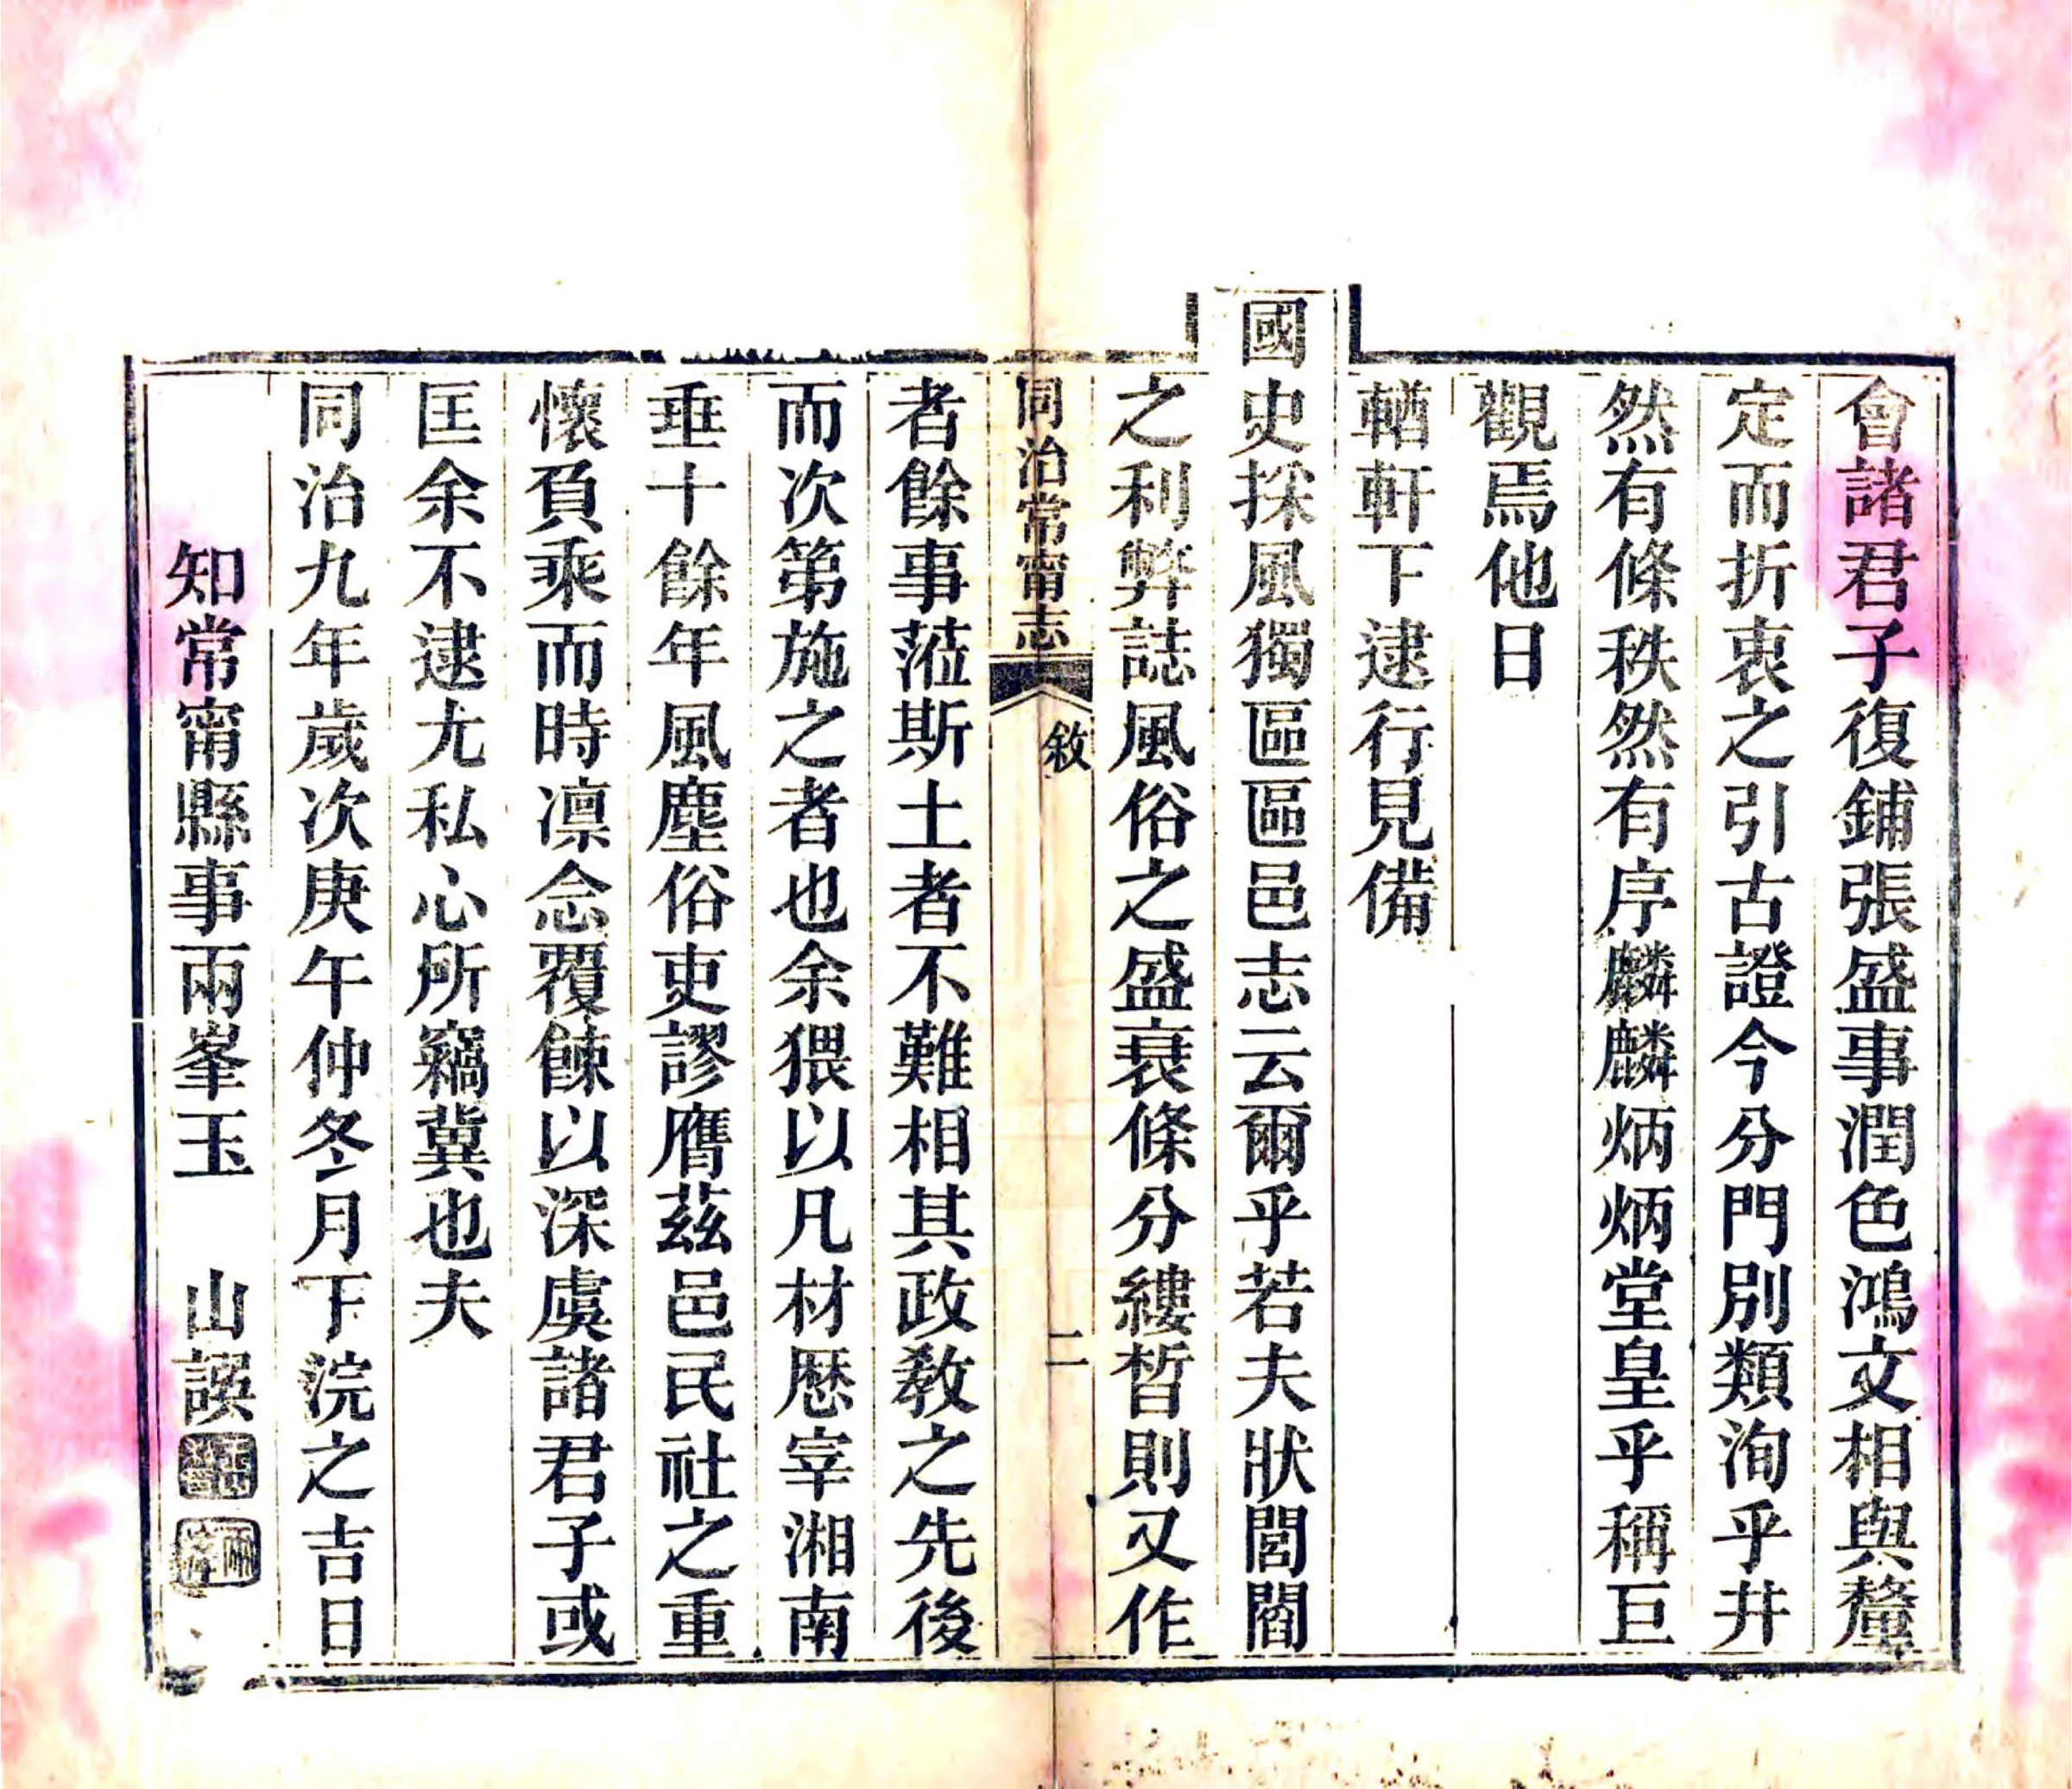 會諸君子復鋪張盛事潤色鴻文相與釐
定而折衷之引古證今分門別類洵乎井
然有條秩然有序麟麟炳炳堂皇乎稱巨
觀焉他日
輶軒下逮行見備
國史採風獨區區邑志云爾乎若夫狀閭閻
之利弊誌風俗之盛衰條分縷晳則又作
同治常甯志
敘
二
者餘事蒞斯土者不難相其政教之先後
而次第施之者也余猥以凡材歷宰湘南
垂十餘年風塵俗吏謬膺茲邑民社之重
懷負乘而時凛念覆餗以深虞諸君子或
匡余不逮尤私心所竊冀也夫
同治九年歲次庚午仲冬月下浣之吉日
知常甯縣事兩峯玉 山譔